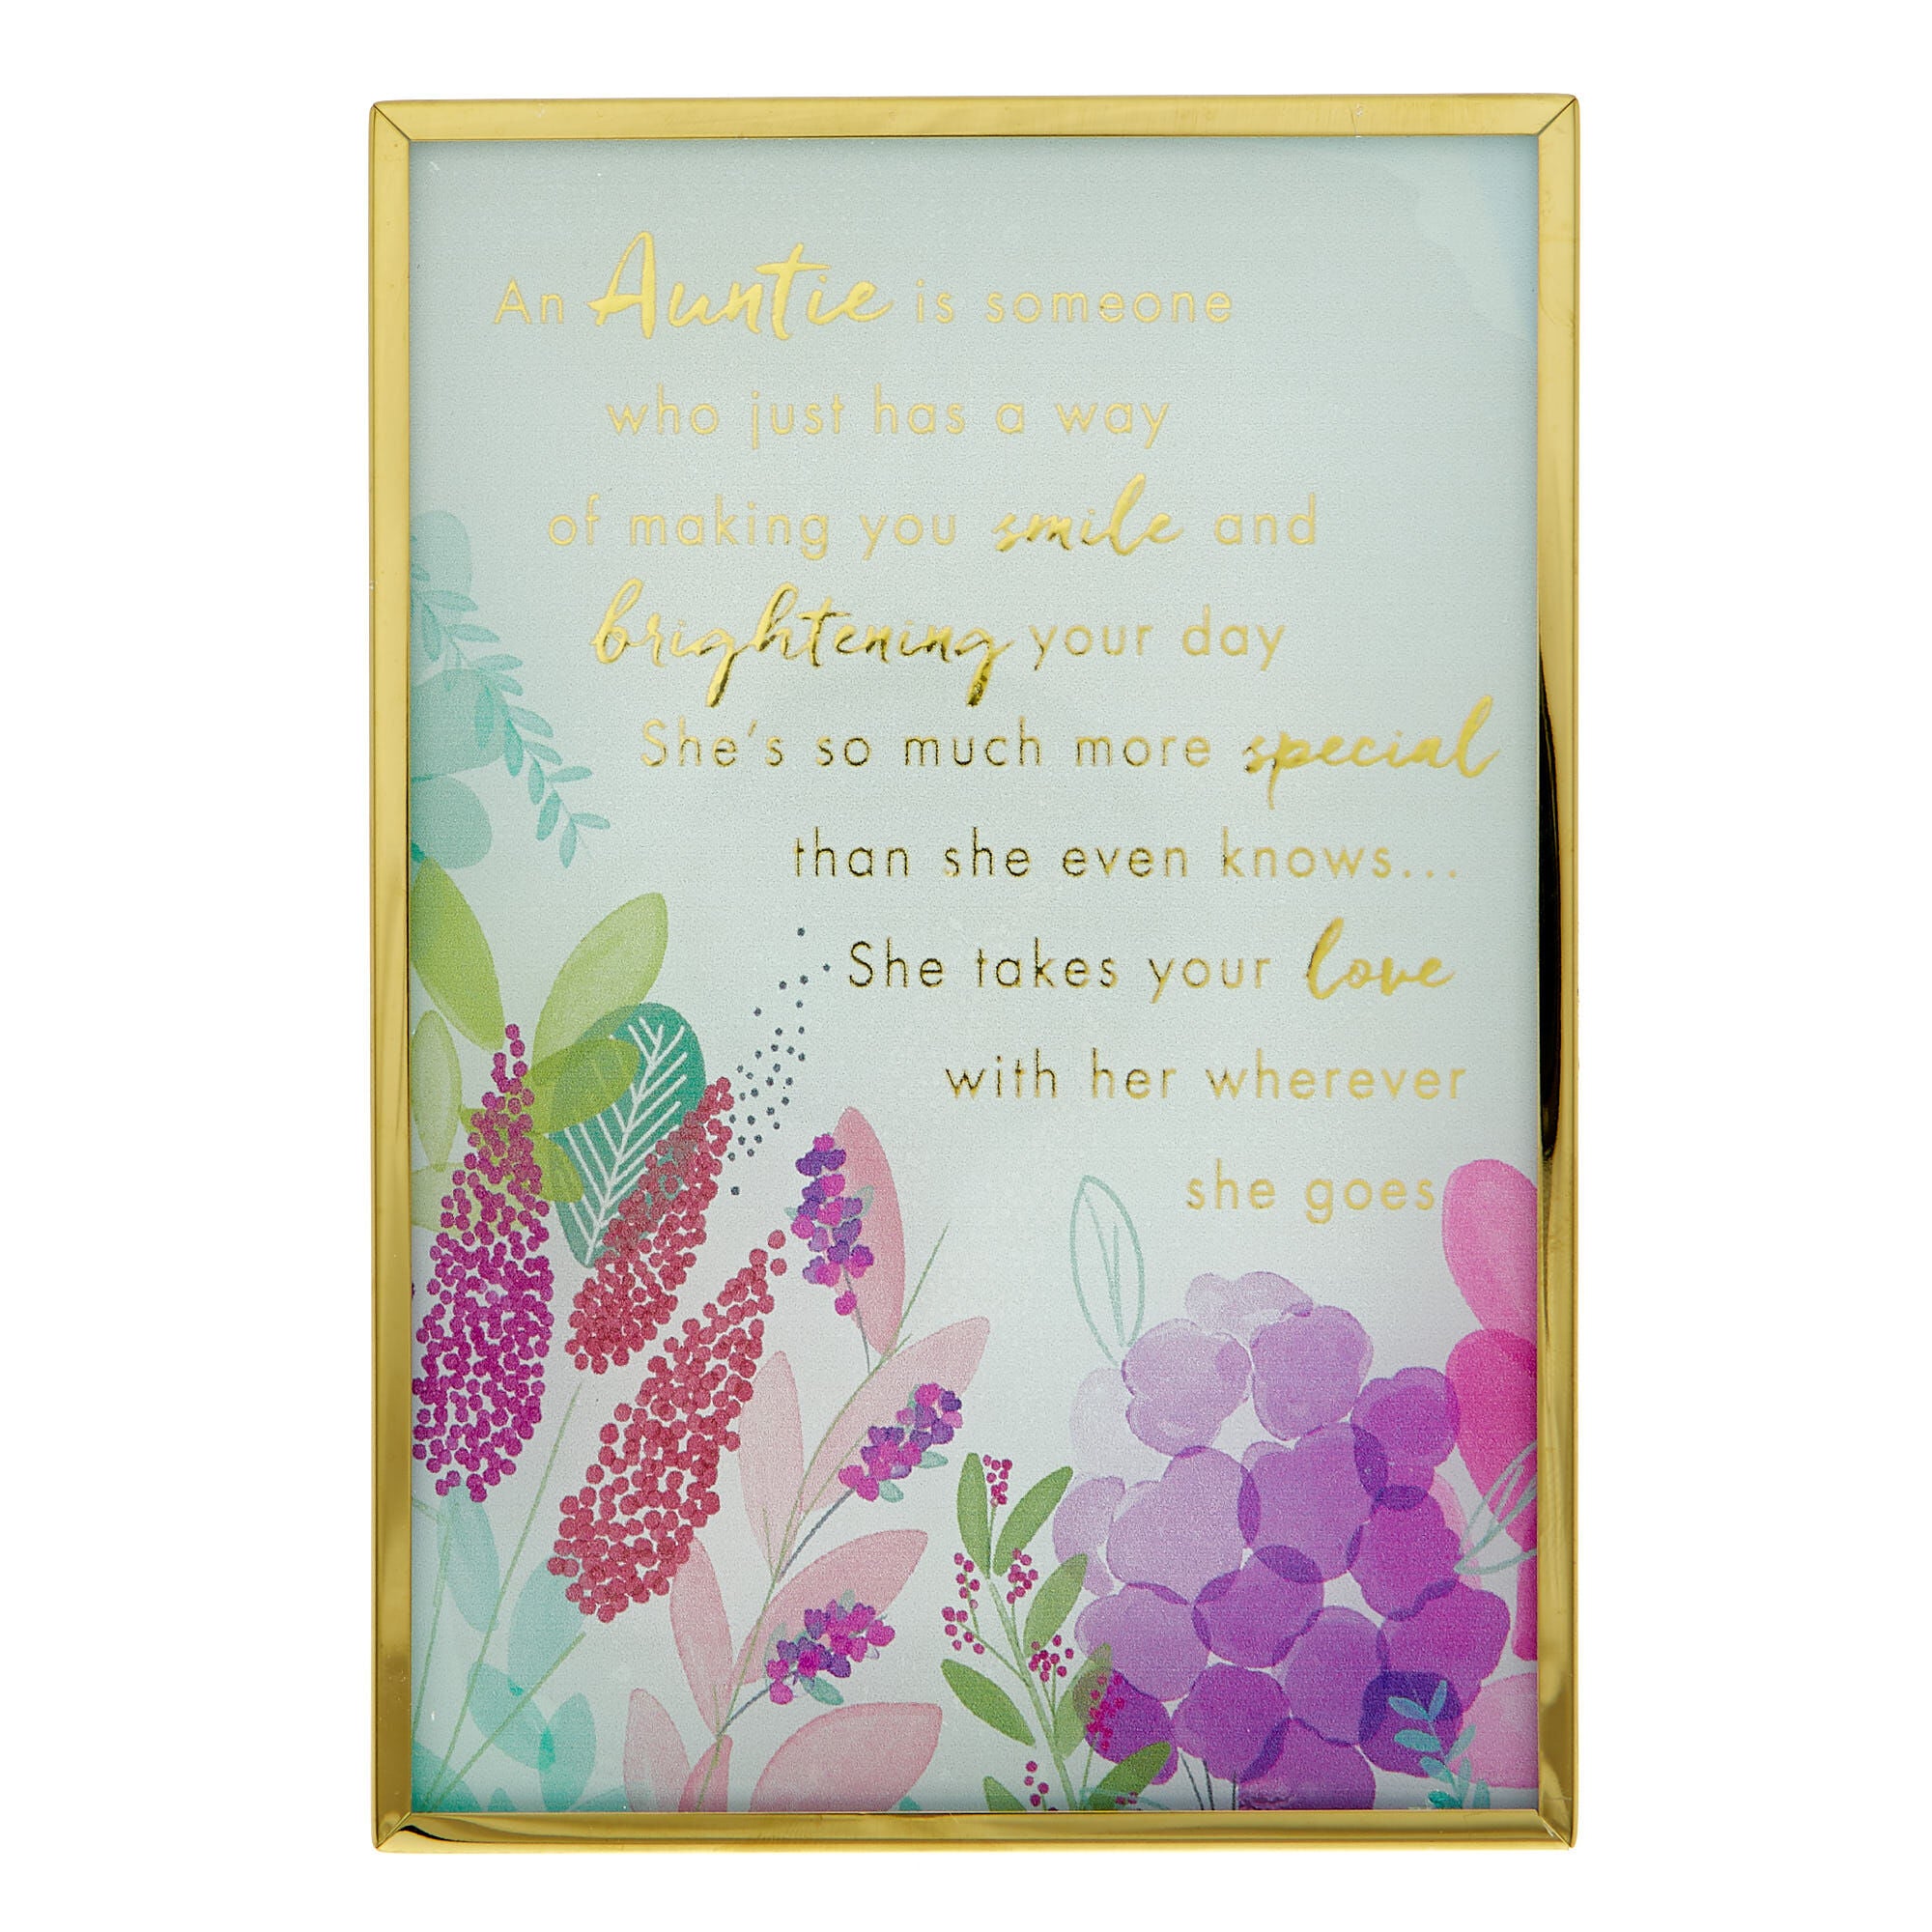 An Auntie is someone
who just has a way
of making you smile and
brightening your day
She's so much more special
than she even knows...
She takes your love
with her wherever
she goes